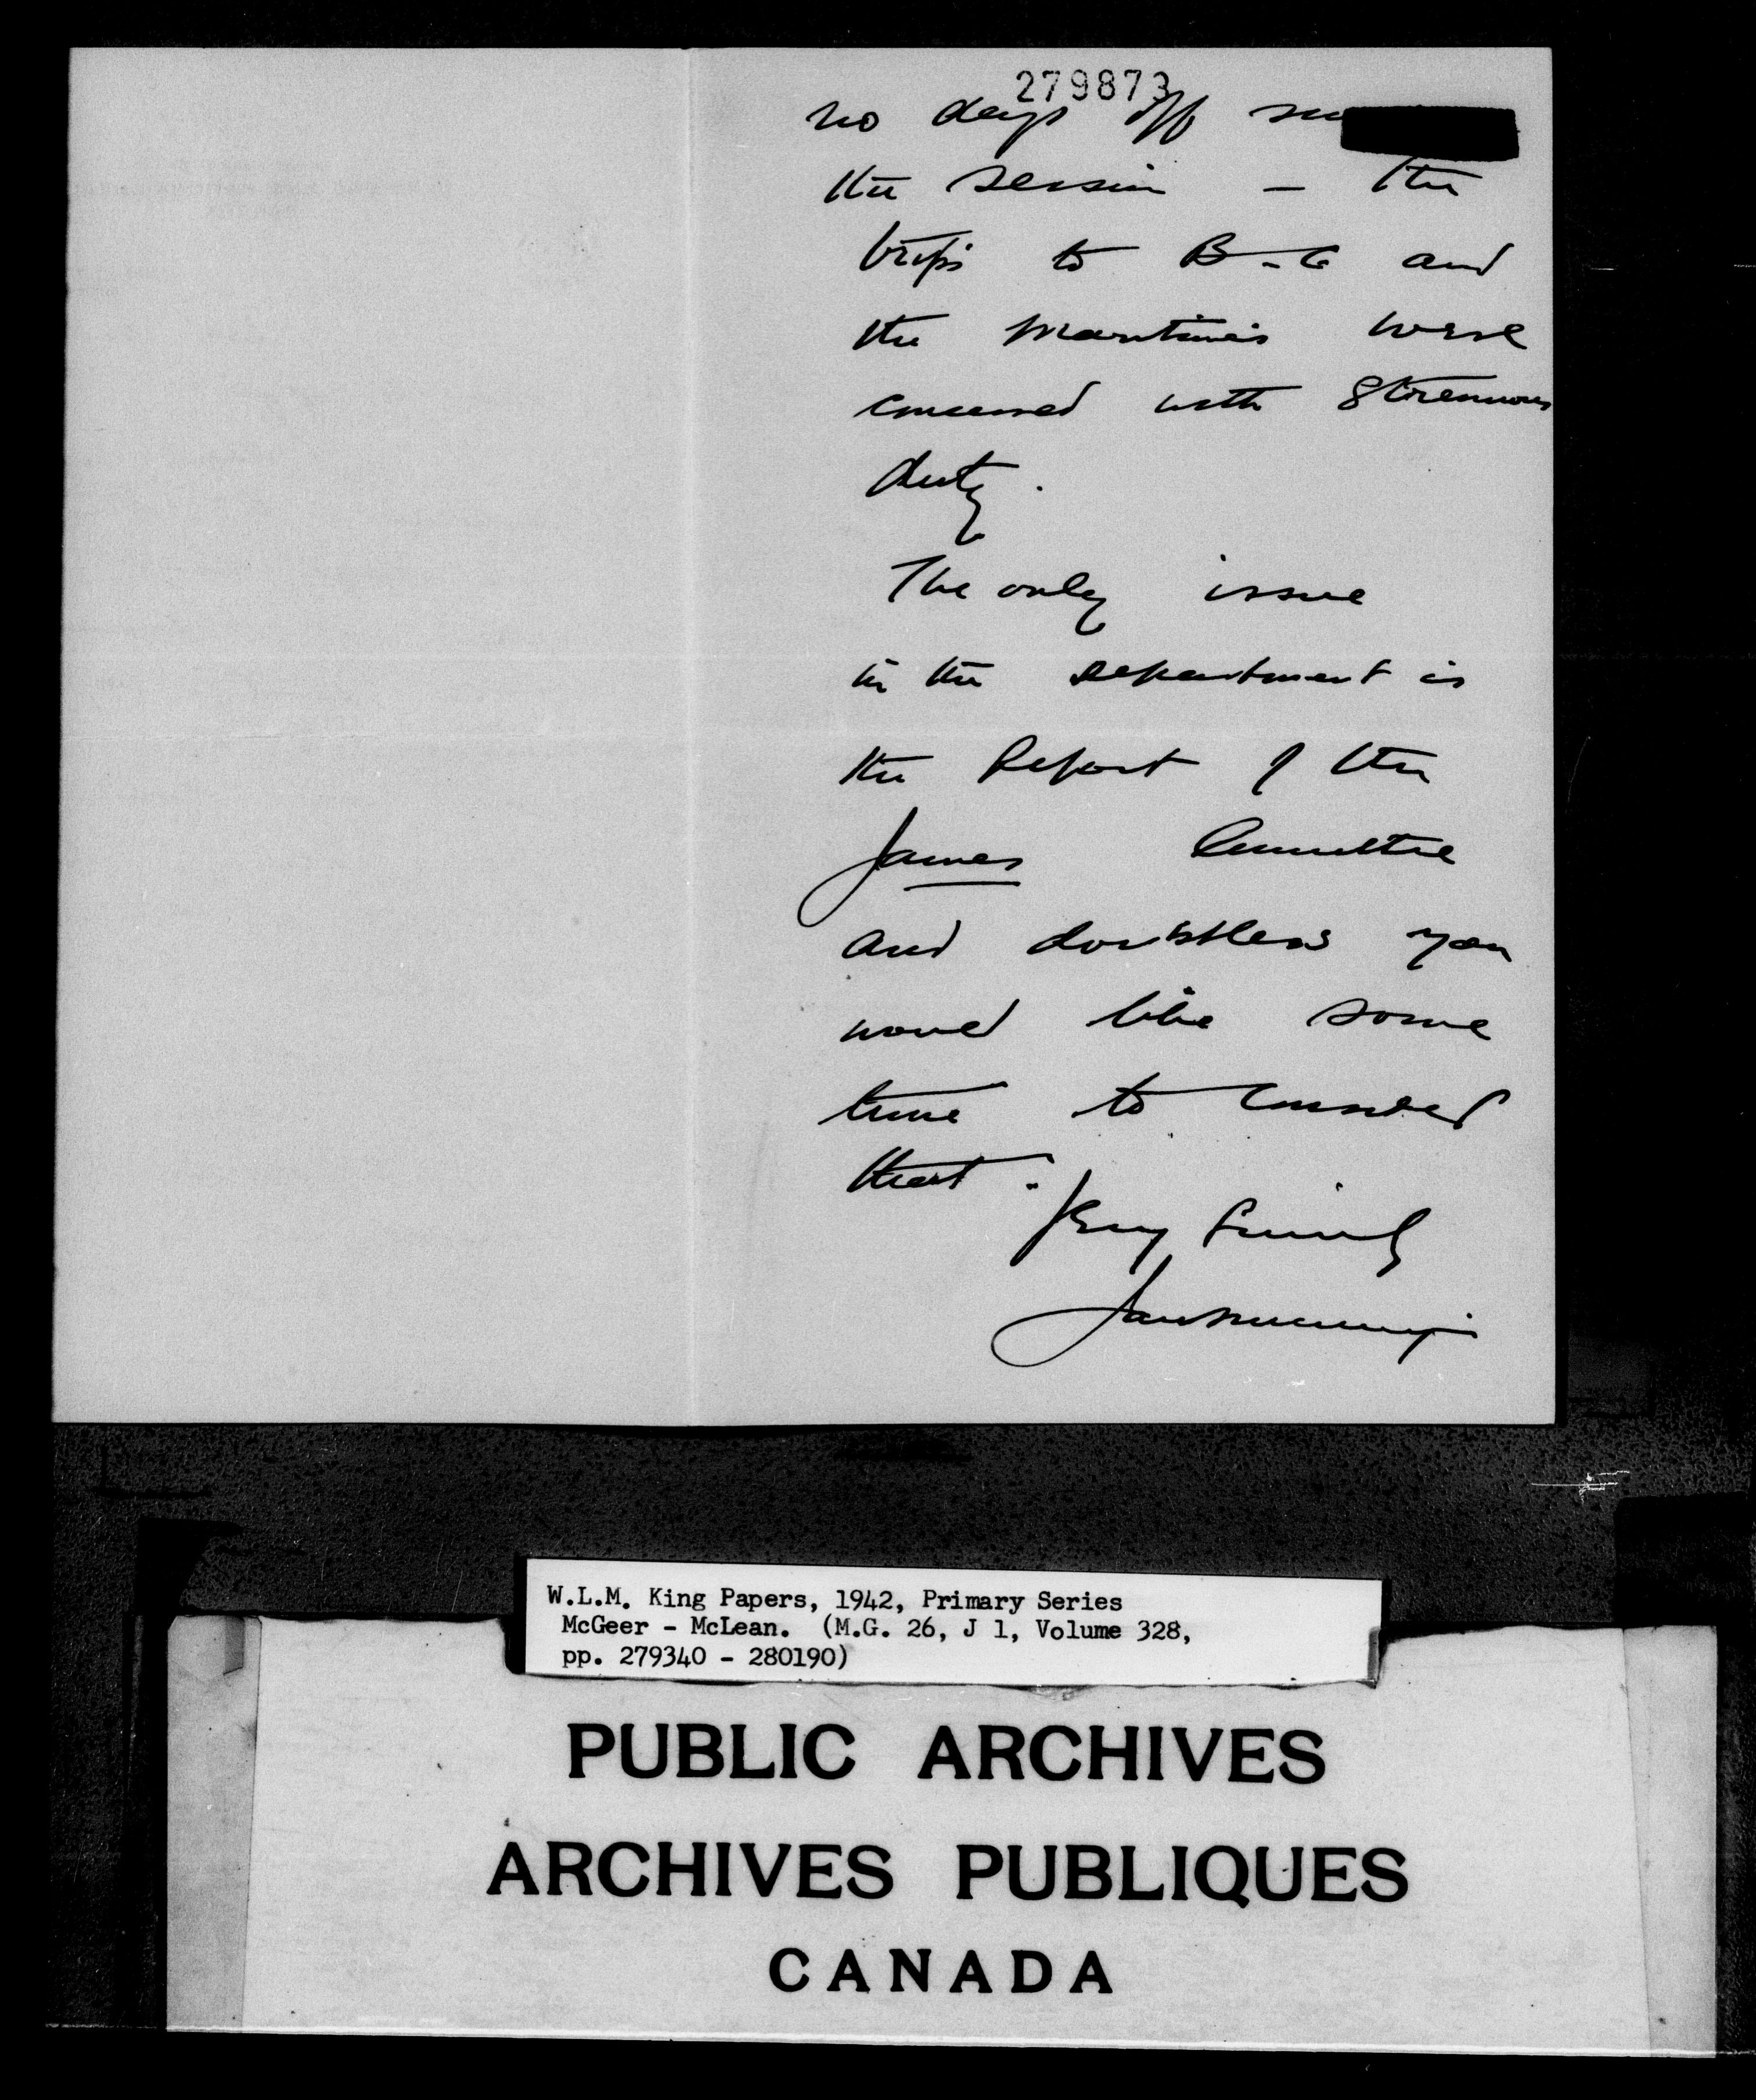 279873
no days off
the session – the
trips to B-C and
the Maritimes were
concerned with strenuous
duty.
The only issue
in the department is
the Report of the
James Committee
and doubtless you
would like some
time to consider
that.
Very Sincerely
W.L.M. King Papers, 1942, Primary Series
McGeer - McLean. (M.G. 26, J 1, Volume 328,
pp. 279340 - 280190)
PUBLIC ARCHIVES
ARCHIVES PUBLIQUES
CANADA